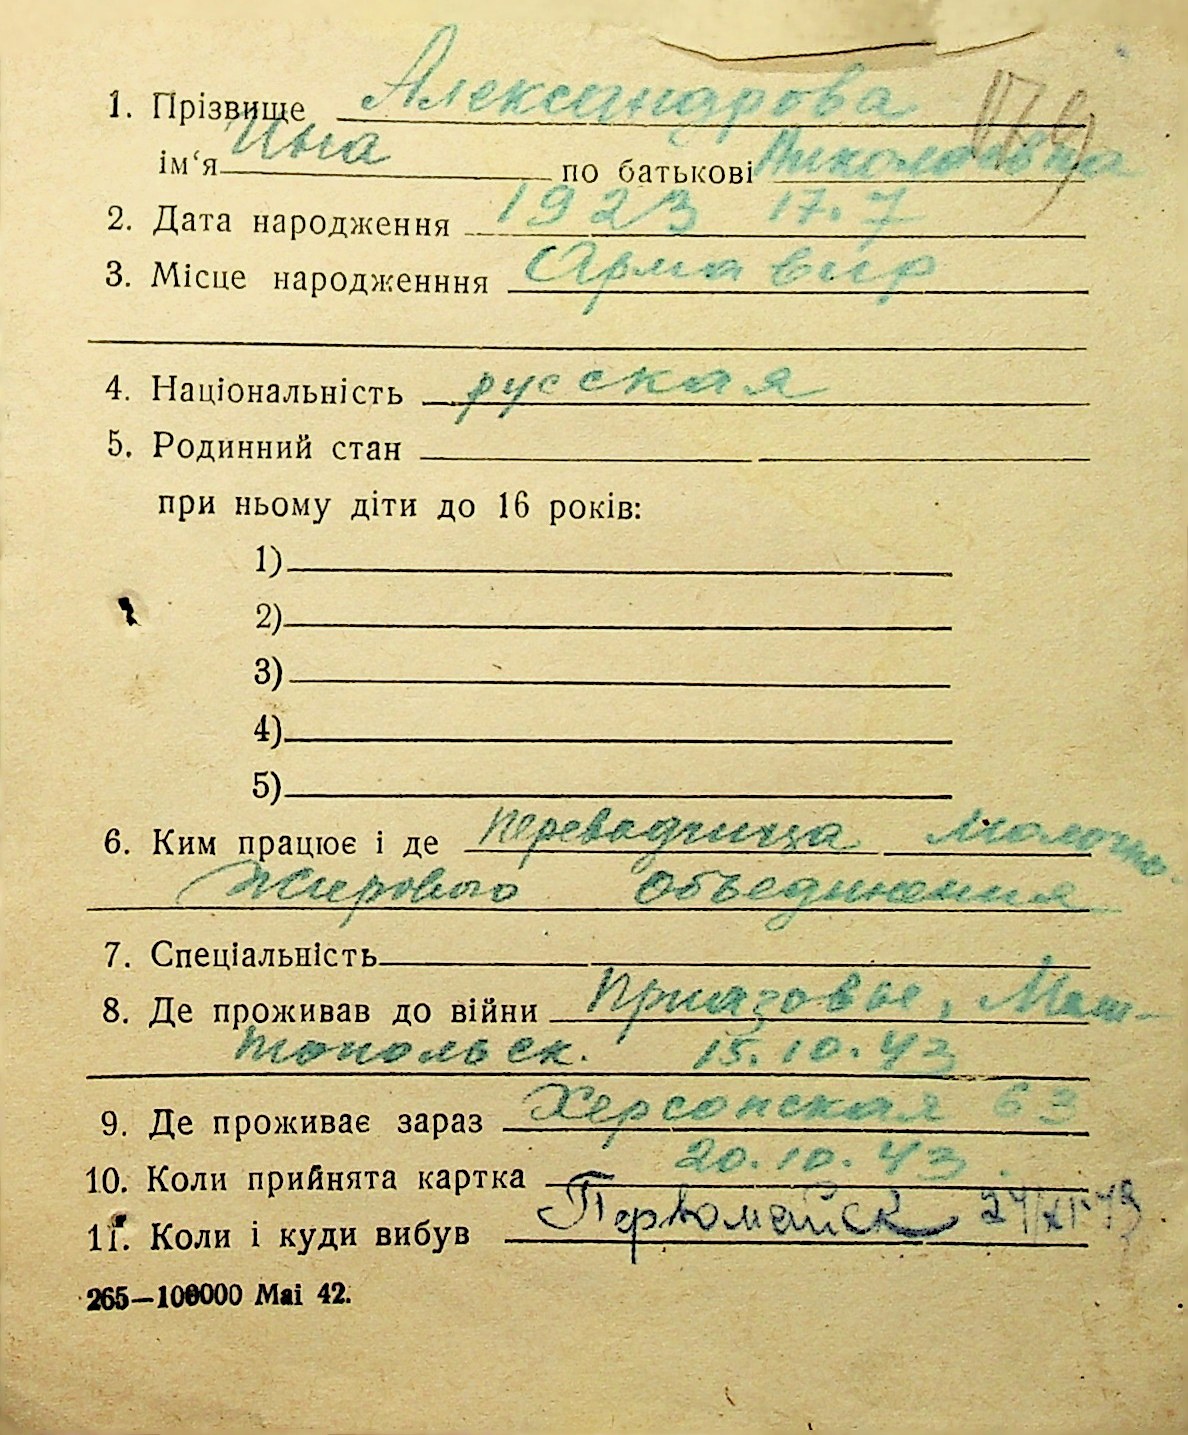 1. Прізвище Александрова
ім‘я Ина по батькові Николаевна
2. Дата народження 1923 17.7
3. Місце народженння Армавир
4. Національність русская
5. Родинний стан
при ньому діти до 16 років:
1)
2)
3)
4)
5)
6. Ким працює і де переводчица Молочно-
жирового объединения
7. Спеціальність
8. Де проживав до війни Приазовье,
15.10.43
9. Де проживає зараз Херсонская 63
10. Коли прийнята картка 20.10.43.
11. Коли і куди вибув Первомайск 24/XI-43
265—100000 Mai 42.